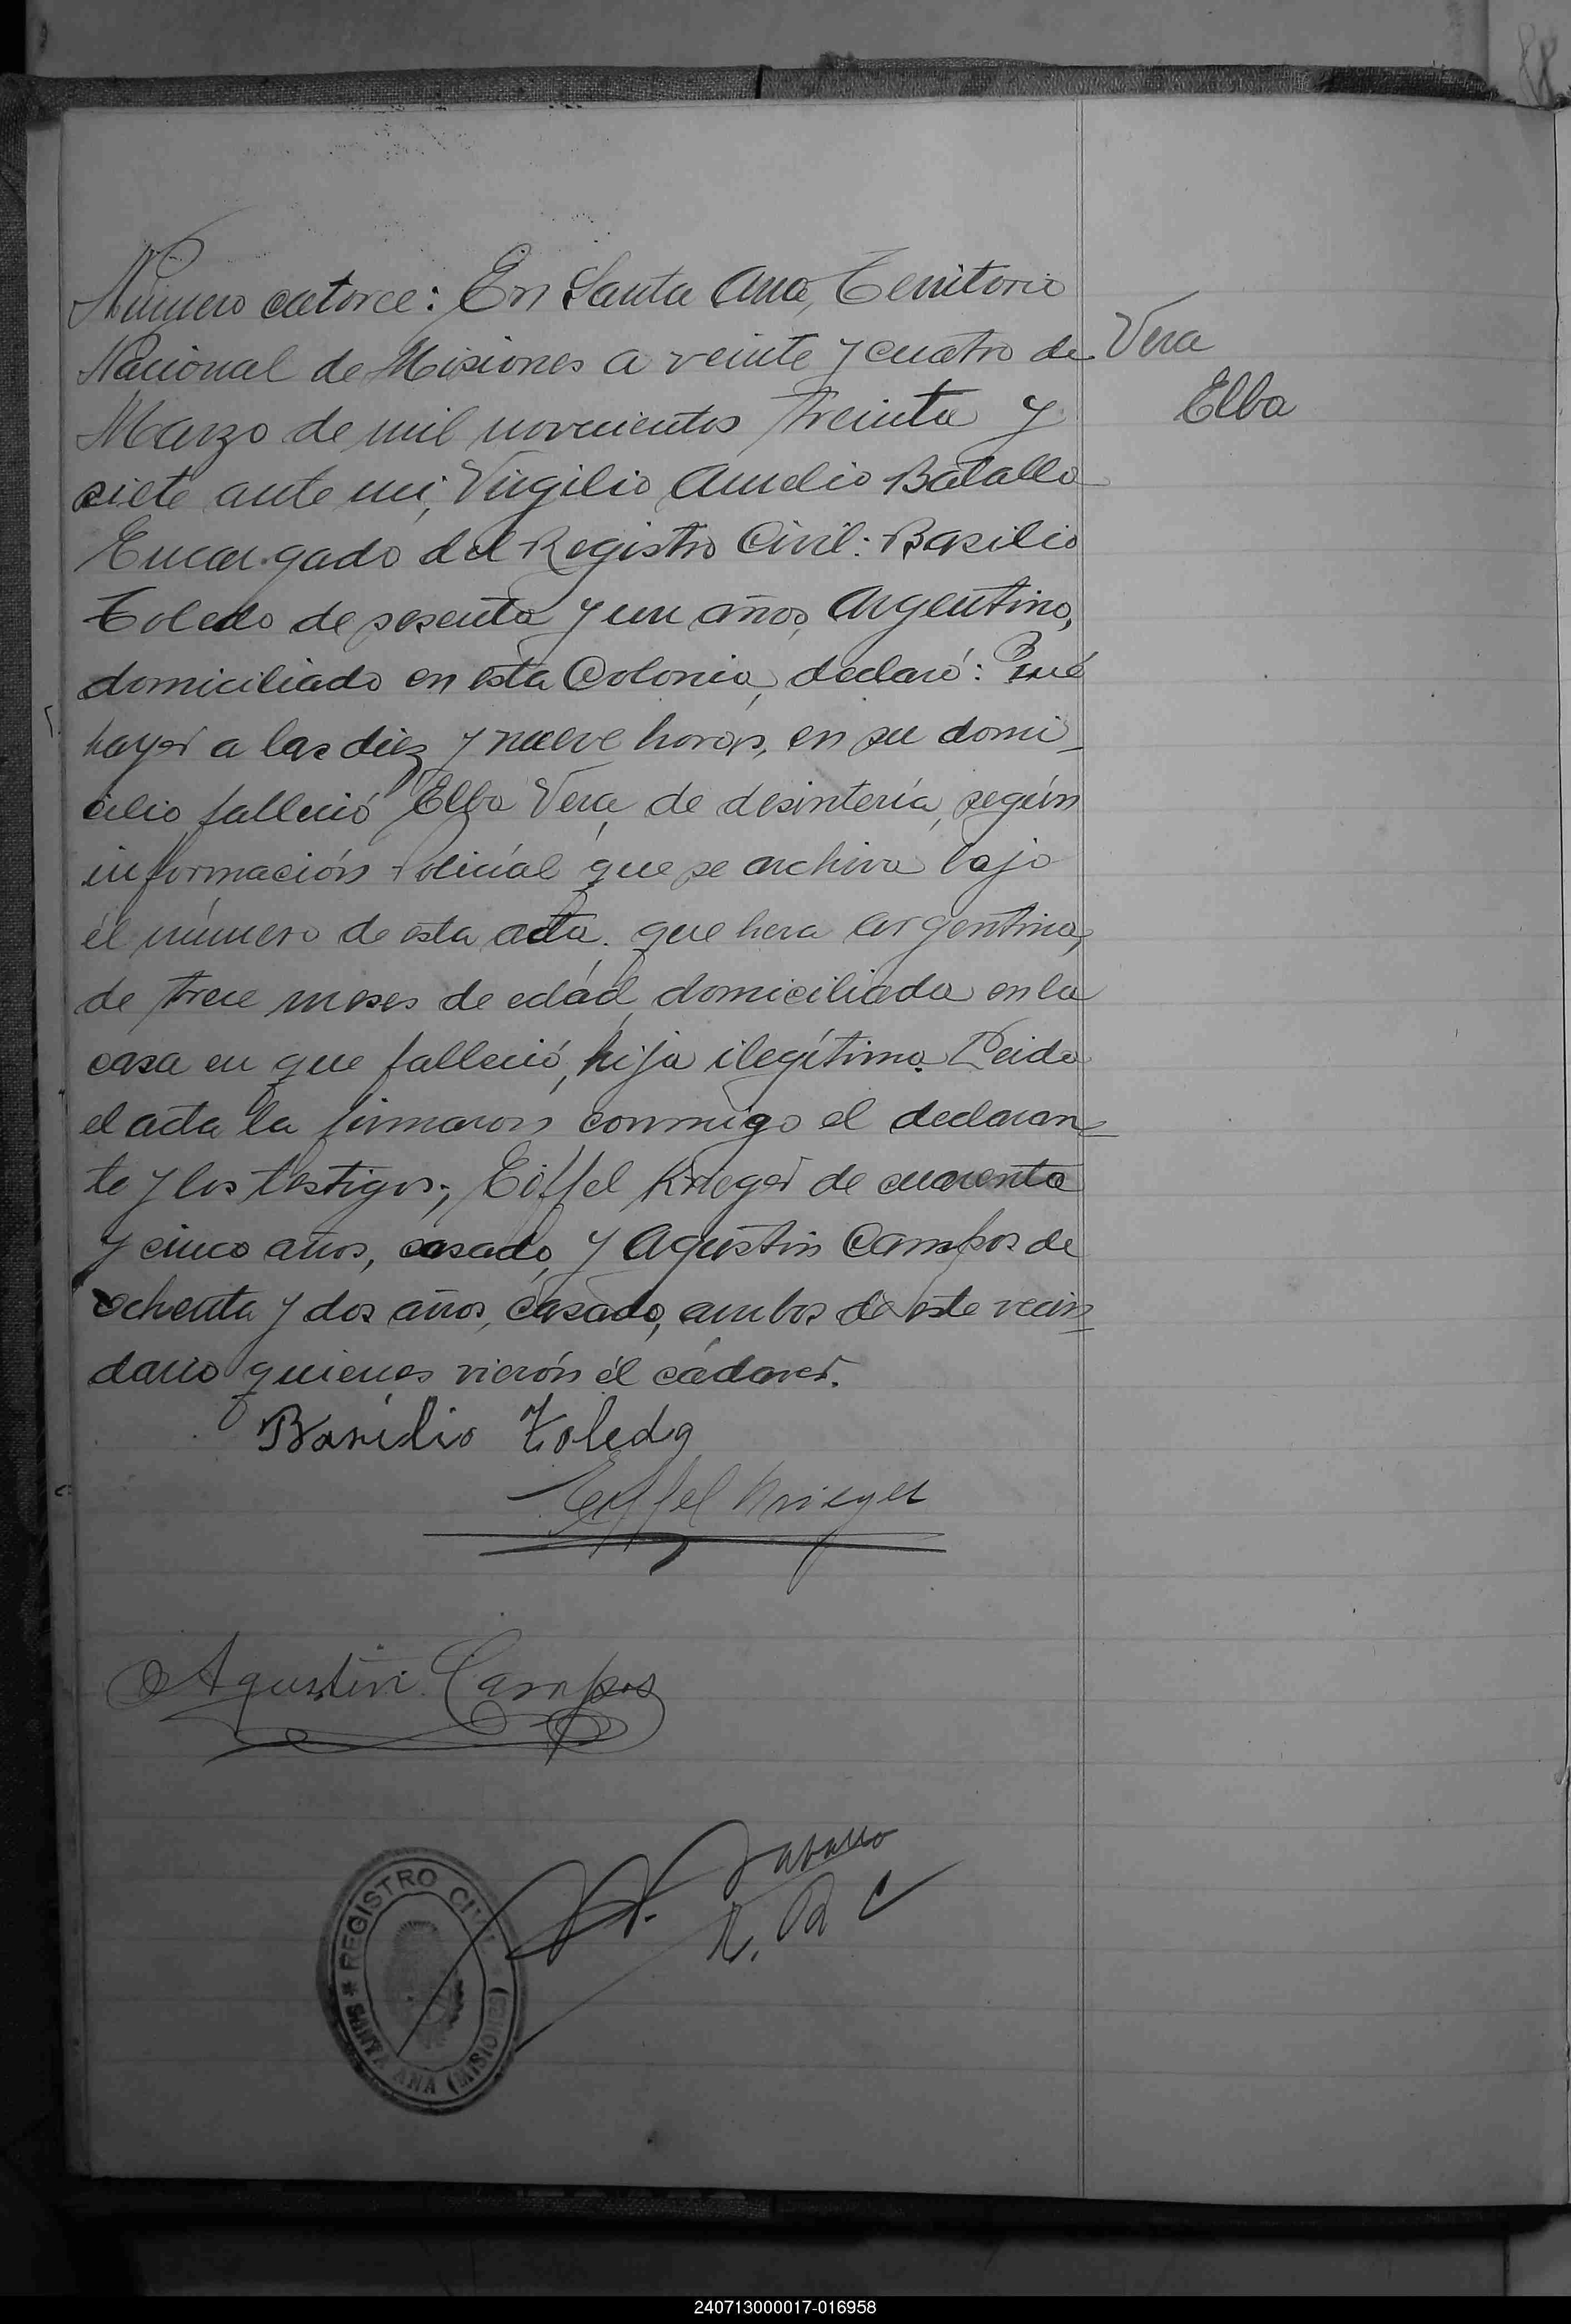 88
Número catorce: En Santa Ana, Territorio
Nacional de Misiones a veinte y cuatro de
Marzo de mil novecientos treinta y
siete ante mi, Virgilio Aurelio Batalla
Encargado del Registro Civil: Basilio
Toledo de sesenta y un años, Argentino,
domiciliado en esta Colonia, declaró: Qué
hayer a las diez y nueve horas, en su domi-
cilio falleció Elba Vera, de desintería, según
información Policial que se archiva bajo
él número de esta acta. que hera argentina,
de trece meses de edád, domiciliada en la
casa en que falleció, hija ilegítima. Leida
el acta la firmaron conmigo el declaran-
te y los testigos; Eiffel Krieger de cuarenta
y cinco años, casado, y Agustin Campos de
ochenta y dos años, casado, ambos de este vecin-
dario quienes vierón él cádaver.
Vera
Elba
Basilio Toledo
Eiffel Krieger
Agustin Campos
REGISTRO CIVIL
SANTA ANA (MISIONES)
240713000017-016958